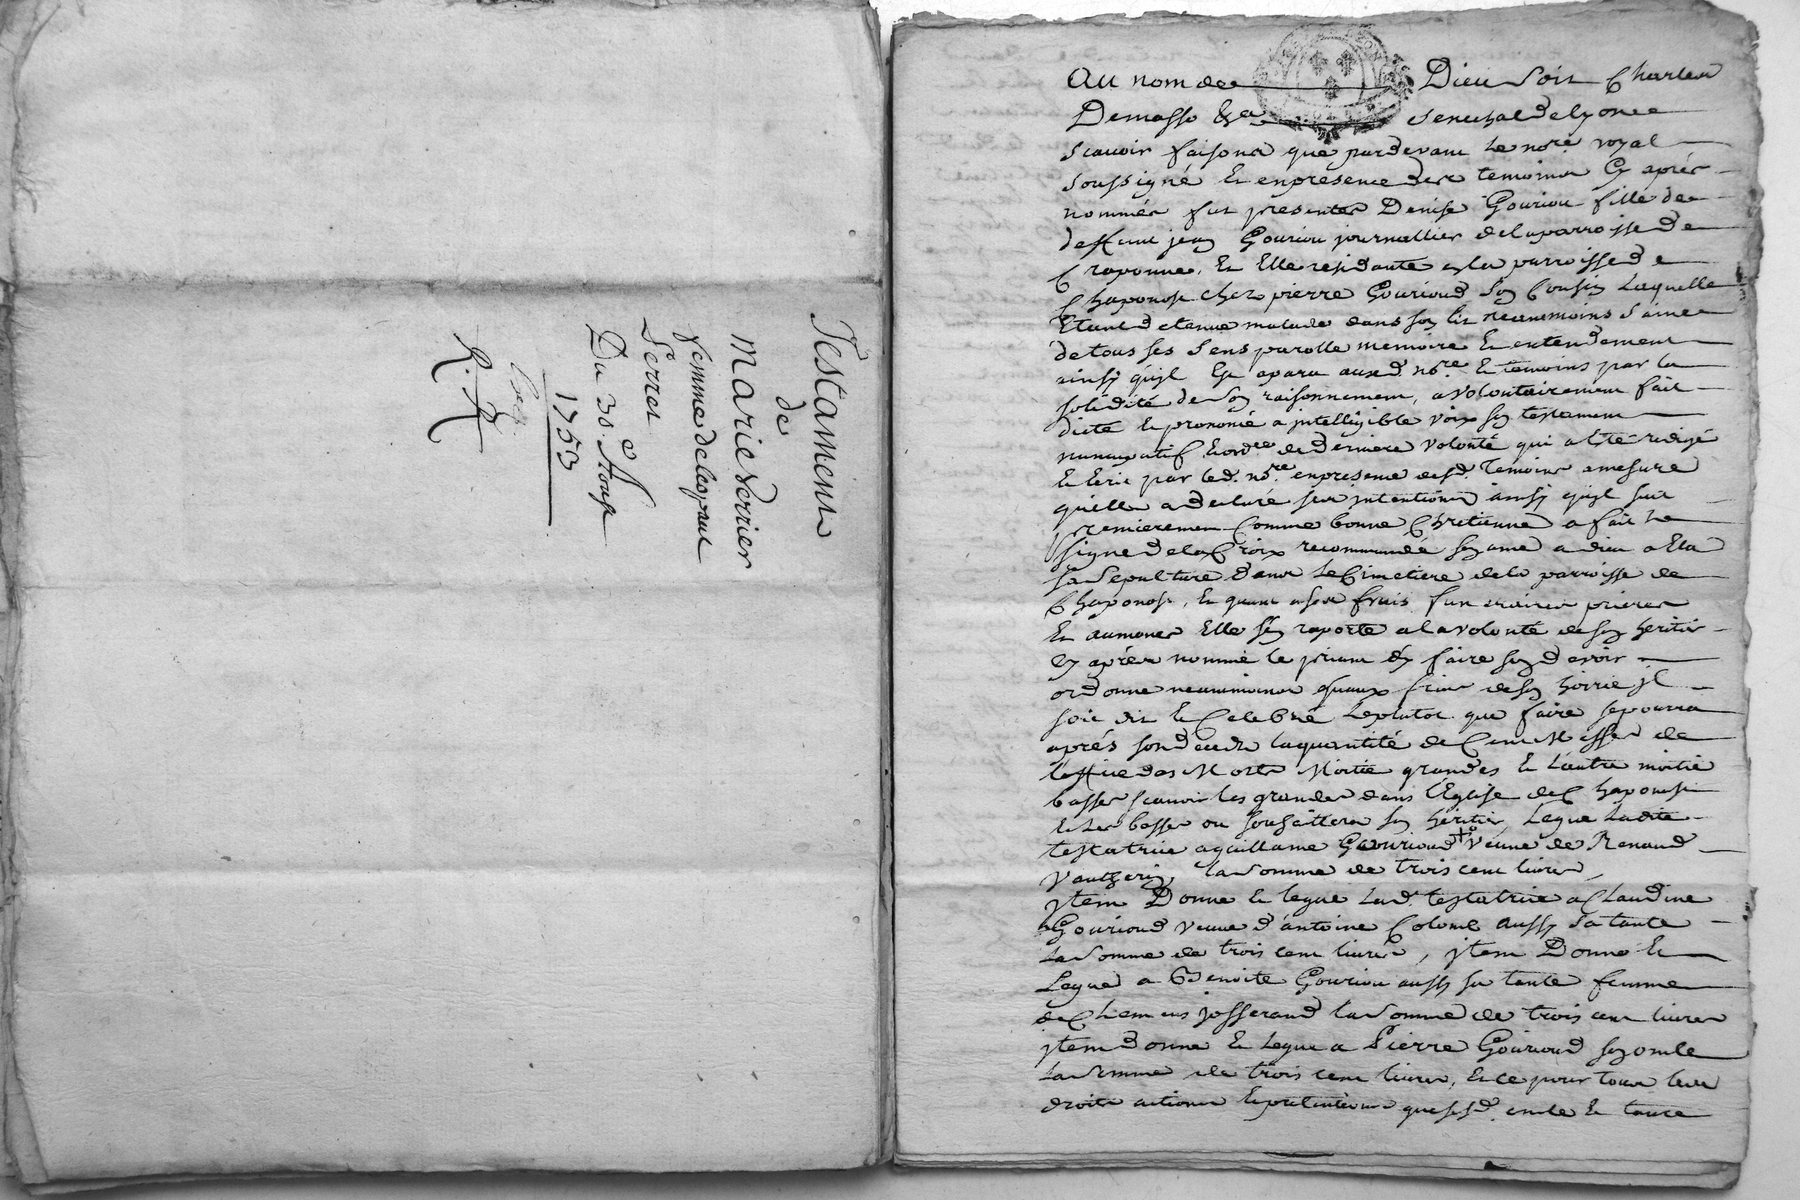 Testament
de
marie Verrier
femme de Leonard
Serret
Du 30.e Aoust
1753
Expe.
R. R.
Au nom de Dieu Soit Charles
Demasso &a Senechal de lyon
scavoir faisons que pardevant Le nore. royal
soussigné et en presence des temoins Cy aprés
nommés fut presente Denise Gouriou fille de
deffunt jean Gouriou journallier de la parroisse de
Craponne, et Elle residante en la parroisse de
Chaponost chez pierre Gourioud son Cousin Laquelle
Etant detenue malade dans son lit neanmoins Saine
de tous ses Sens parolle memoire et entendement
ainsy quyl Est aparu auxd. nore. et temoins par la
solidité de Son raisonnement, a volontairement fait
dicté et prononcé a jntelligible voix son testament
nuncupatif et ordce de derniere volonté qui a Eté redigé
et Ecrit par led. nore. en presence desd. temoins a mesure
quelle a declaré ses jntentions ainsy quyl suit
Premierement Comme bonne Chretienne a fait le
signe de la Croix recommandé son ame a dieu Elu
sa Sepulture dans Le Cimetiere de la parroisse de
Chaponost, et quant a ses frais funeraires prieres
et aumones Elle s'en raporte a la volonté de son heritier
Cy aprés nommé le priant d'en faire son devoir
ordonne neanmoins quaux frais de son hoirie jl
soit dit et Celebré Leplutot que faire se pourra
aprés son decéz la quantité de Cent Messes de
l'office des Morts Moitié grandes et L'autre moitié
basses scavoir les grandes dans l'Eglise de Chaponost
et Les basses ou souhaittera son heritier, Legue Ladite
testatrice a guillame Gourioud + veuve de Renaud
Vautherin, la Somme de trois cent livres,
jtem Donne et legue Lad. testatrice a Claudine
Gourioud veuve d'antoine Colomb aussy Sa tante
La Somme de trois cent livres, jtem Donne et
Legue a Benoite Gouriou aussy sa tante femme
de Clemens josserand la Somme de trois cent livres
jtem donne et Legue a Pierre Gourioud son oncle
La Somme de trois cent livres, et ce pour tous leurs
droits actions et pretentions que sesd. oncle et tante